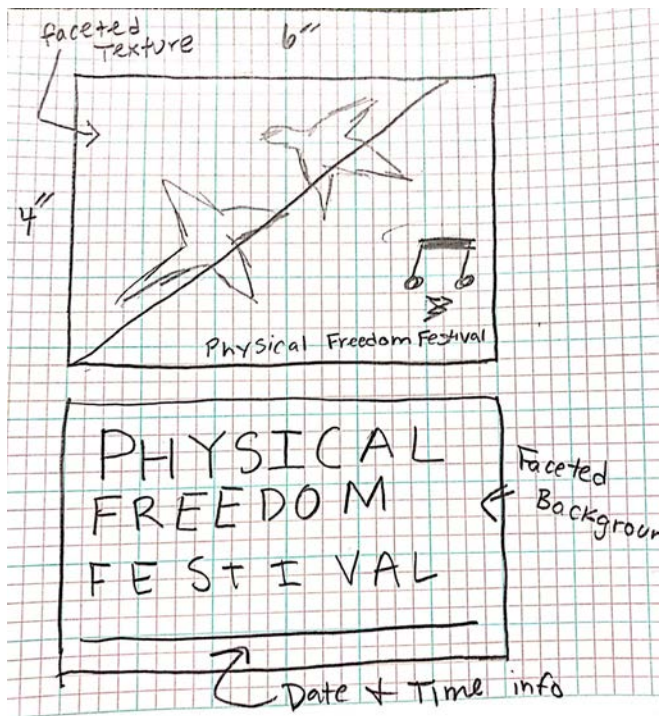 faceted
Texture
6"
4"
Physical Freedom Festival
PHYSICAL
FREEDOM
FESTIVAL
Faceted
Backgroun
Date & Time info